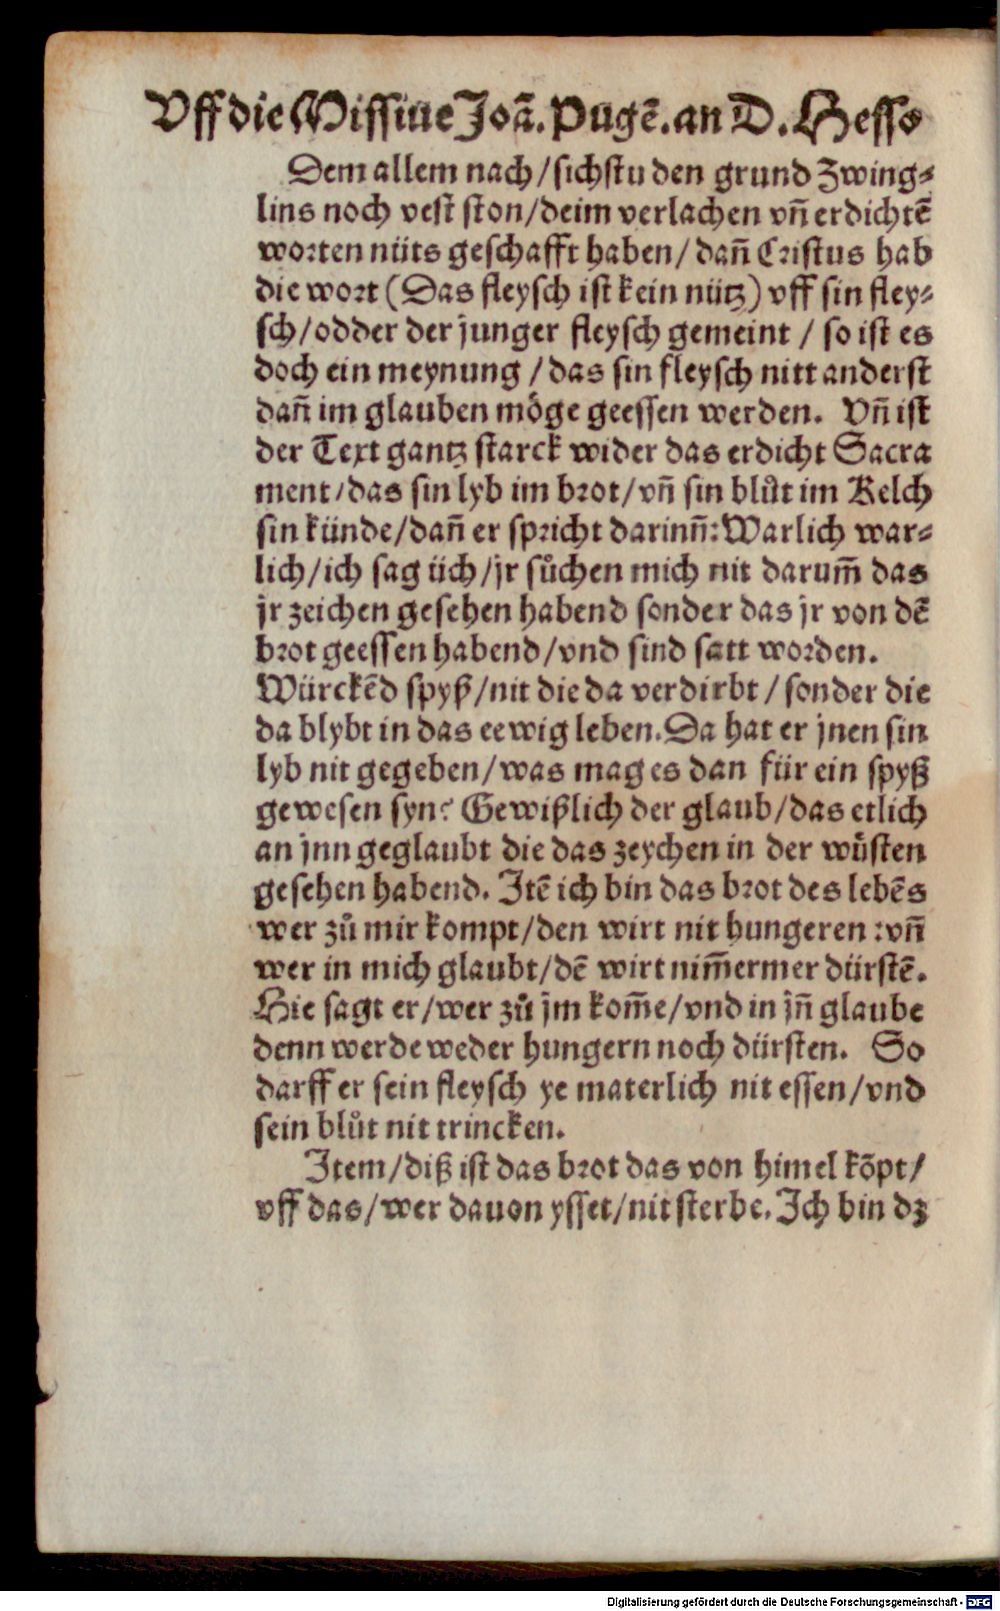 Vff die Missiue Joã. Pugẽ. an D. Hesso
Dem allem nach / sichstu den grund Zwing⸗
lins noch vest ston / deim verlachen vñ erdichtẽ
worten nüts geschafft haben / dañ Cristus hab
die wort (Das fleysch ist kein nütz) vff sin fley⸗
sch / odder der junger fleysch gemeint / so ist es
doch ein meynung / das sin fleysch nitt anderst
dañ im glauben möge geessen werden. Vñ ist
der Text gantz starck wider das erdicht Sacra
ment / das sin lyb im brot / vñ sin blůt im Kelch
sin künde / dañ er spricht darinñ: Warlich war⸗
lich / ich sag üch / jr sůchen mich nit darum̃ das
jr zeichen gesehen habend sonder das jr von dẽ
brot geessen habend / vnd sind satt worden.
Würckẽd spyß / nit die da verdirbt / sonder die
da blybt in das eewig leben. Da hat er jnen sin
lyb nit gegeben / was mag es dan für ein spyß
gewesen syn? Gewißlich der glaub / das etlich
an jnn geglaubt die das zeychen in der wůsten
gesehen habend. Itẽ ich bin das brot des lebẽs
wer zů mir kompt / den wirt nit hungeren : vñ
wer in mich glaubt / dẽ wirt nim̃ermer dürstẽ.
Hie sagt er / wer zů jm kom̃e / vnd in jñ glaube
denn werde weder hungern noch dürsten. So
darff er sein fleysch ye materlich nit essen / vnd
sein blůt nit trincken.
Item / diß ist das brot das von himel kõpt /
vff das / wer dauon ysset / nit sterbe. Ich bin dz
Digitalisierung gefördert durch die Deutsche Forschungsgemeinschaft - DFG